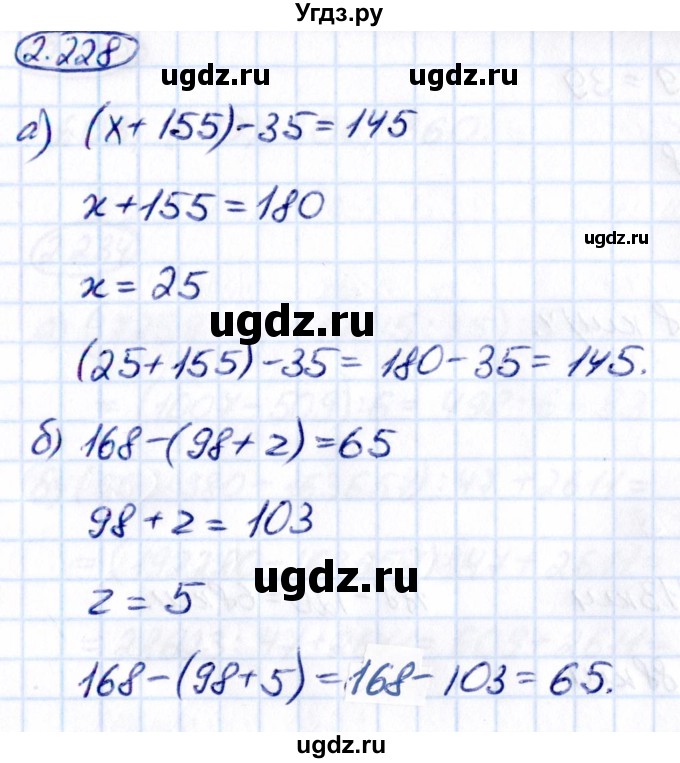 Угдз.ру
2.228
ugdz.ru ugdz.ru
а) (x+155)-35=145
x+155=180
ugdz.ru
x=25
ugdz.ru
(25+155)-35=180-35=145.
б) 168-(98+z)=65
98+z=103
ugdz.ru
z=5
168-(98+5)=168-103=65.
ugdz.ru